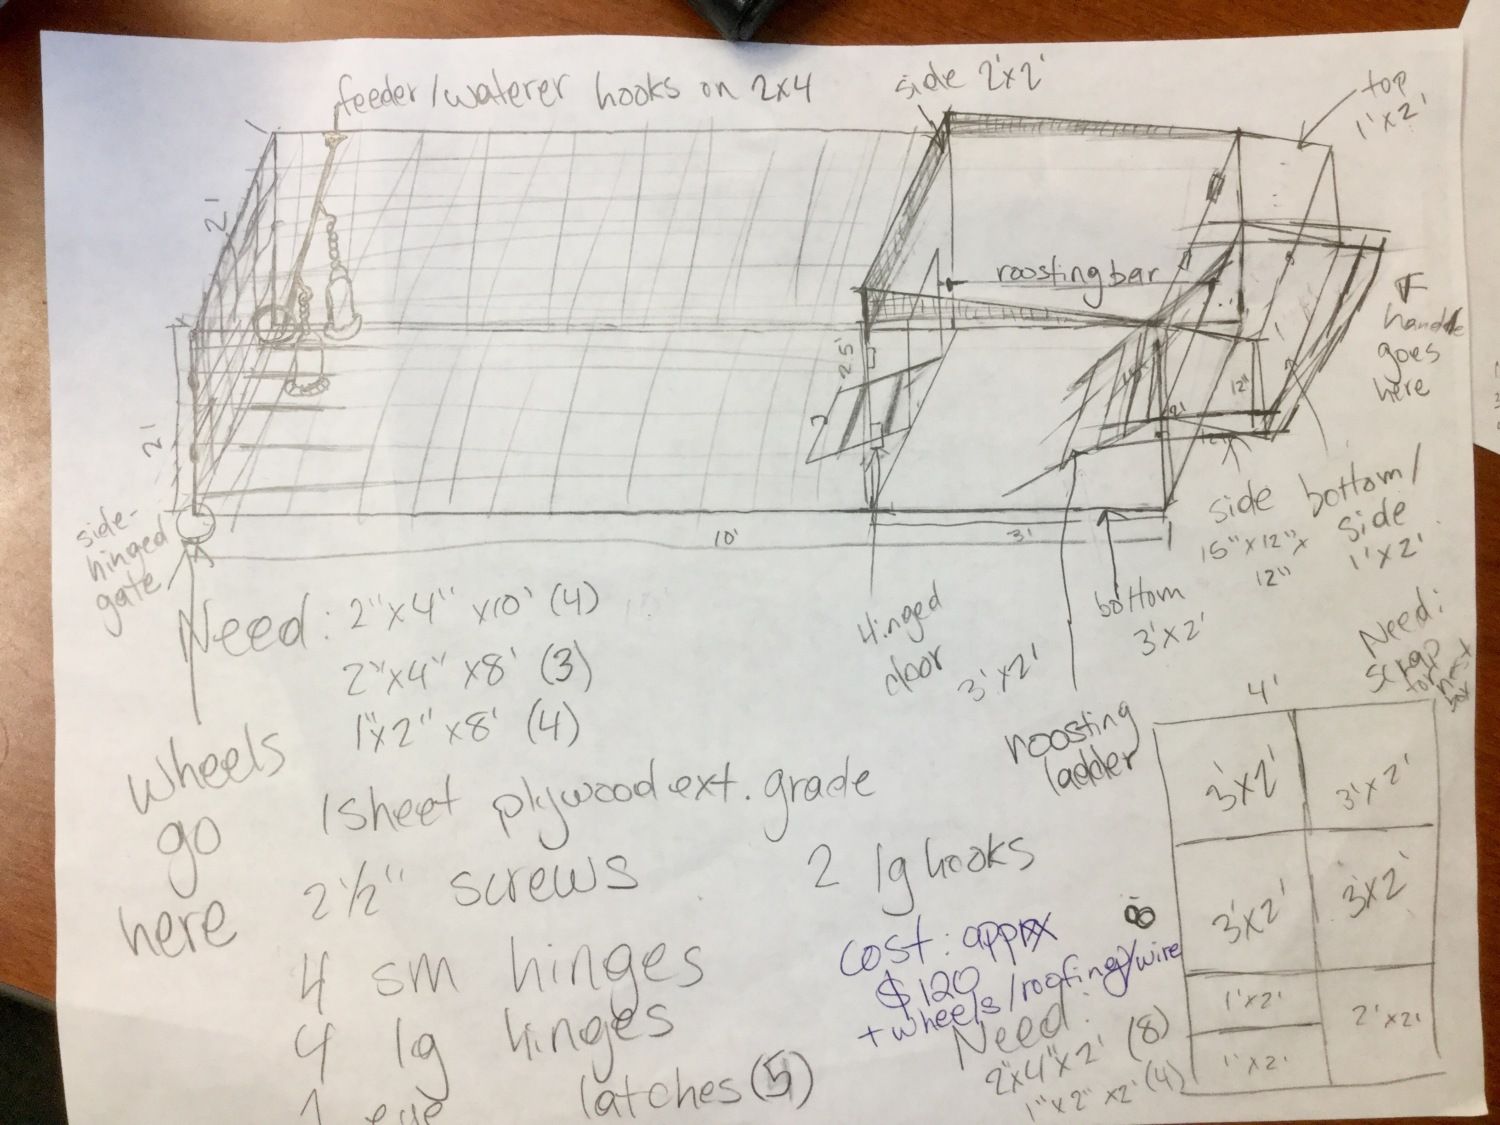 feeder/waterer hooks on 2x4
side 2'x2'
top
1'x2'
2'
roosting bar
handle
goes
here
2.5'
12"
2'
2'
12"
side-
hinged
gate
10'
3'
side
15"x12"x
12"
bottom/
side
1'x2'
bottom
3'x2'
Hinged
door
3'x2'
roosting
ladder
Need:
scrap
for nest
box
Need: 2"x4"x10' (4)
2"x4"x8' (3)
1"x2"x8' (4)
1 sheet plywood ext. grade
2 1/2" screws
4 sm hinges
4 lg hinges
1 eye
latches (5)
2 lg hooks
wheels
go
here
cost: apprx
$120
+ wheels/roofing/wire
Need:
2"x4"x2' (8)
1"x2"x2' (4)
4'
8
3'x2'
3'x2'
3'x2'
3'x2'
1'x2'
2'x2'
1'x2'